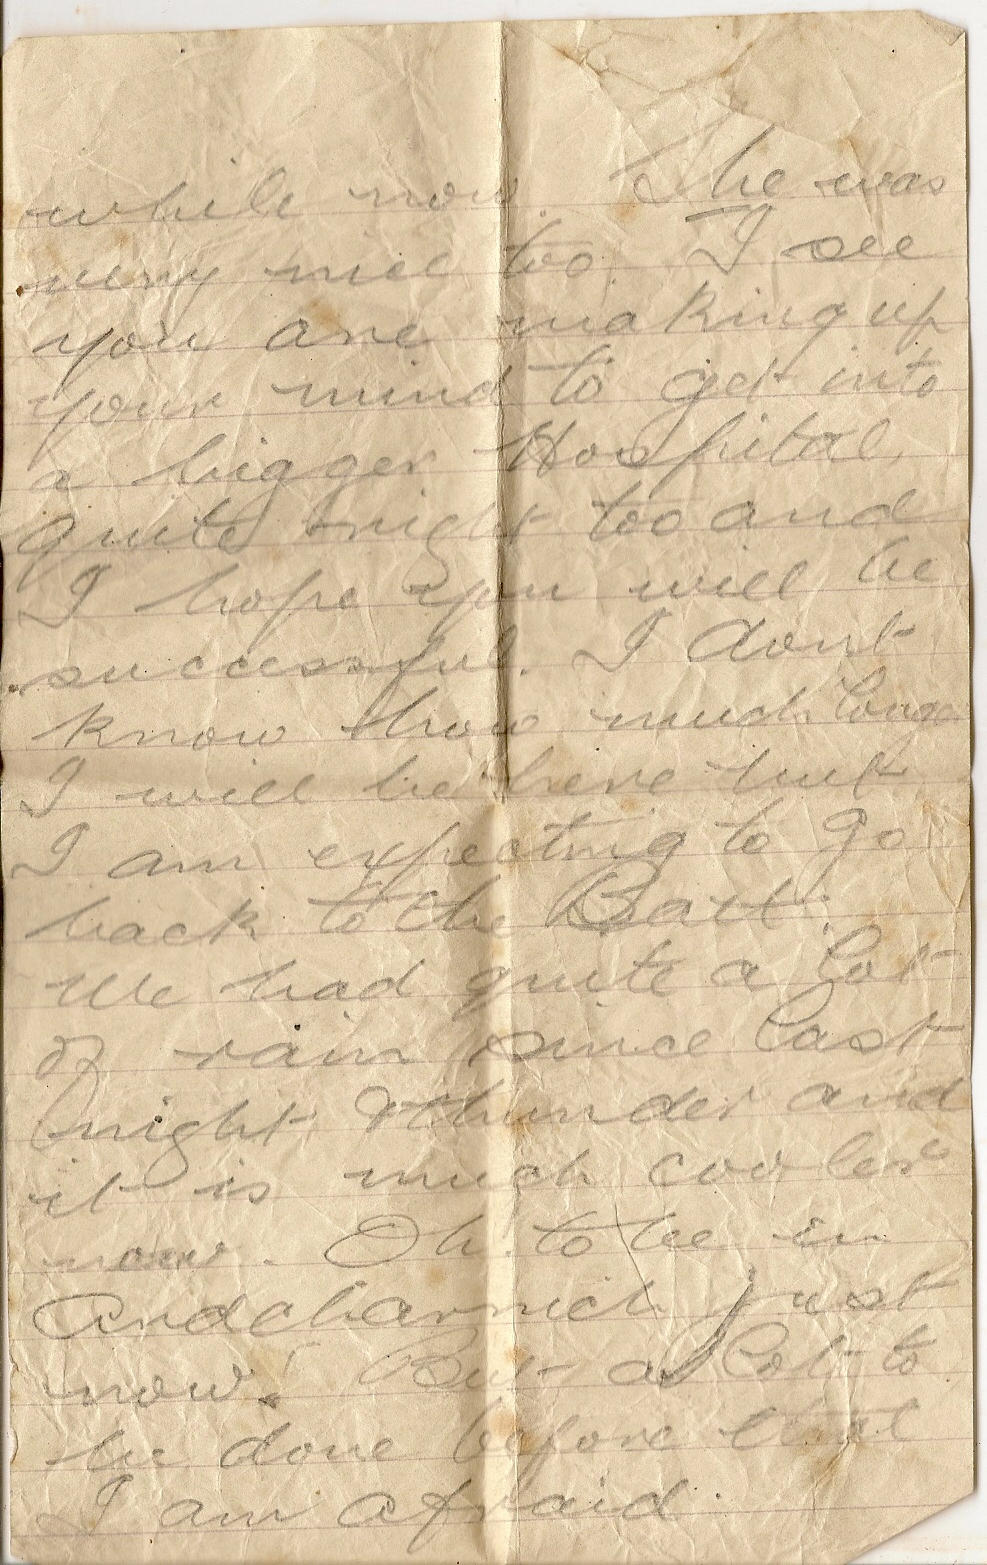 while now. She was
very nice too. I see
you are making up
your mind to get into
a bigger Hospital,
quite right too and
I hope you will be
successful. I dont
know how much longer
I will be here but
I am expecting to go
back to the Batt.
We had quite a lot
of rain since last
night & thunder and
it is much cooler
now. Oh. to be in
Ardcharnich just
now! But a lot to
be done before that
I am afraid.